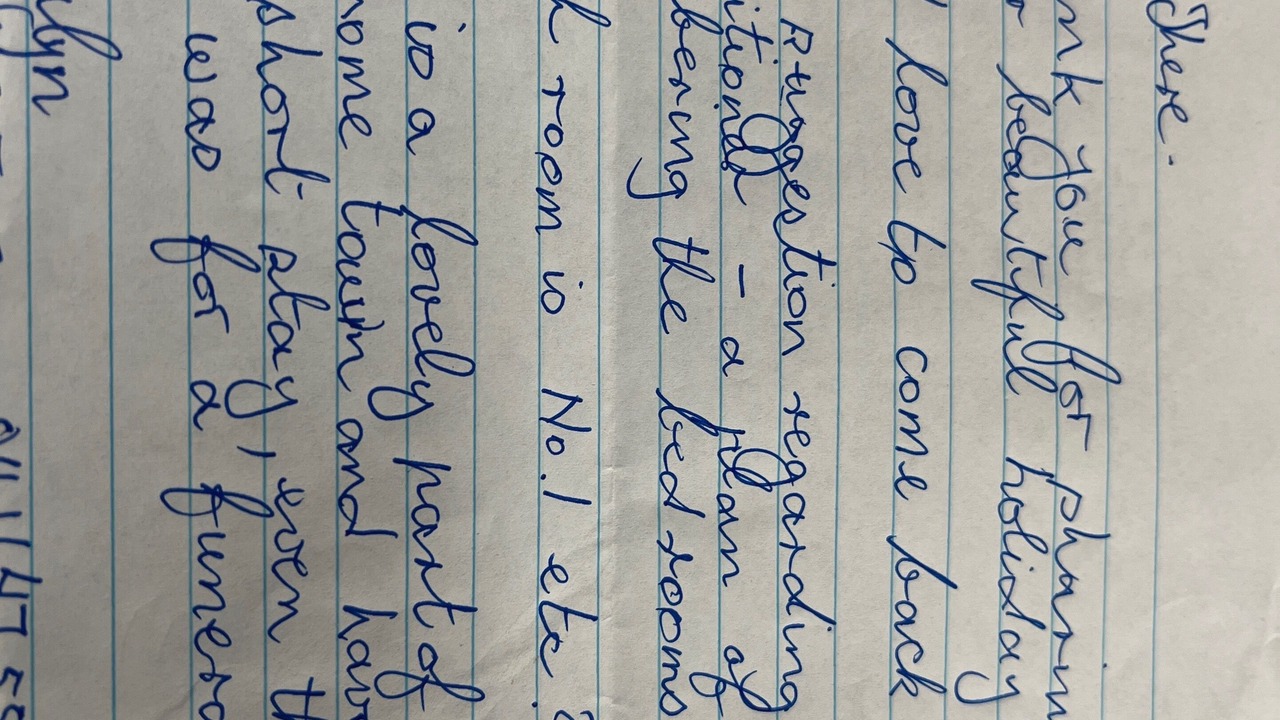 There.
nk you for sharin
r beautiful holiday
love to come back
suggestion regarding
itional - a plan of
bering the bedrooms
h room is No.1 etc?
is a lovely part of
home town and hav
short stay, even th
was for a funera
lyn